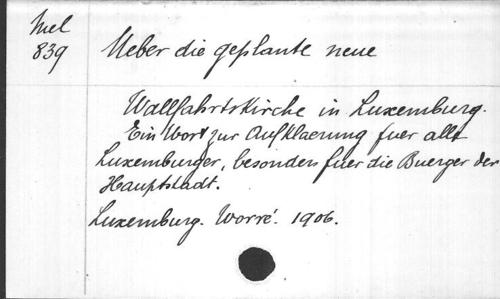 Mel
839
Ueber die geplante neue
Wallfahrtskirche in Luxemburg.
Ein Wort zur Aufklaerung fuer alle
Luxemburger, besonders fuer die Buerger der
Hauptstadt.
Luxemburg. Worré. 1906.